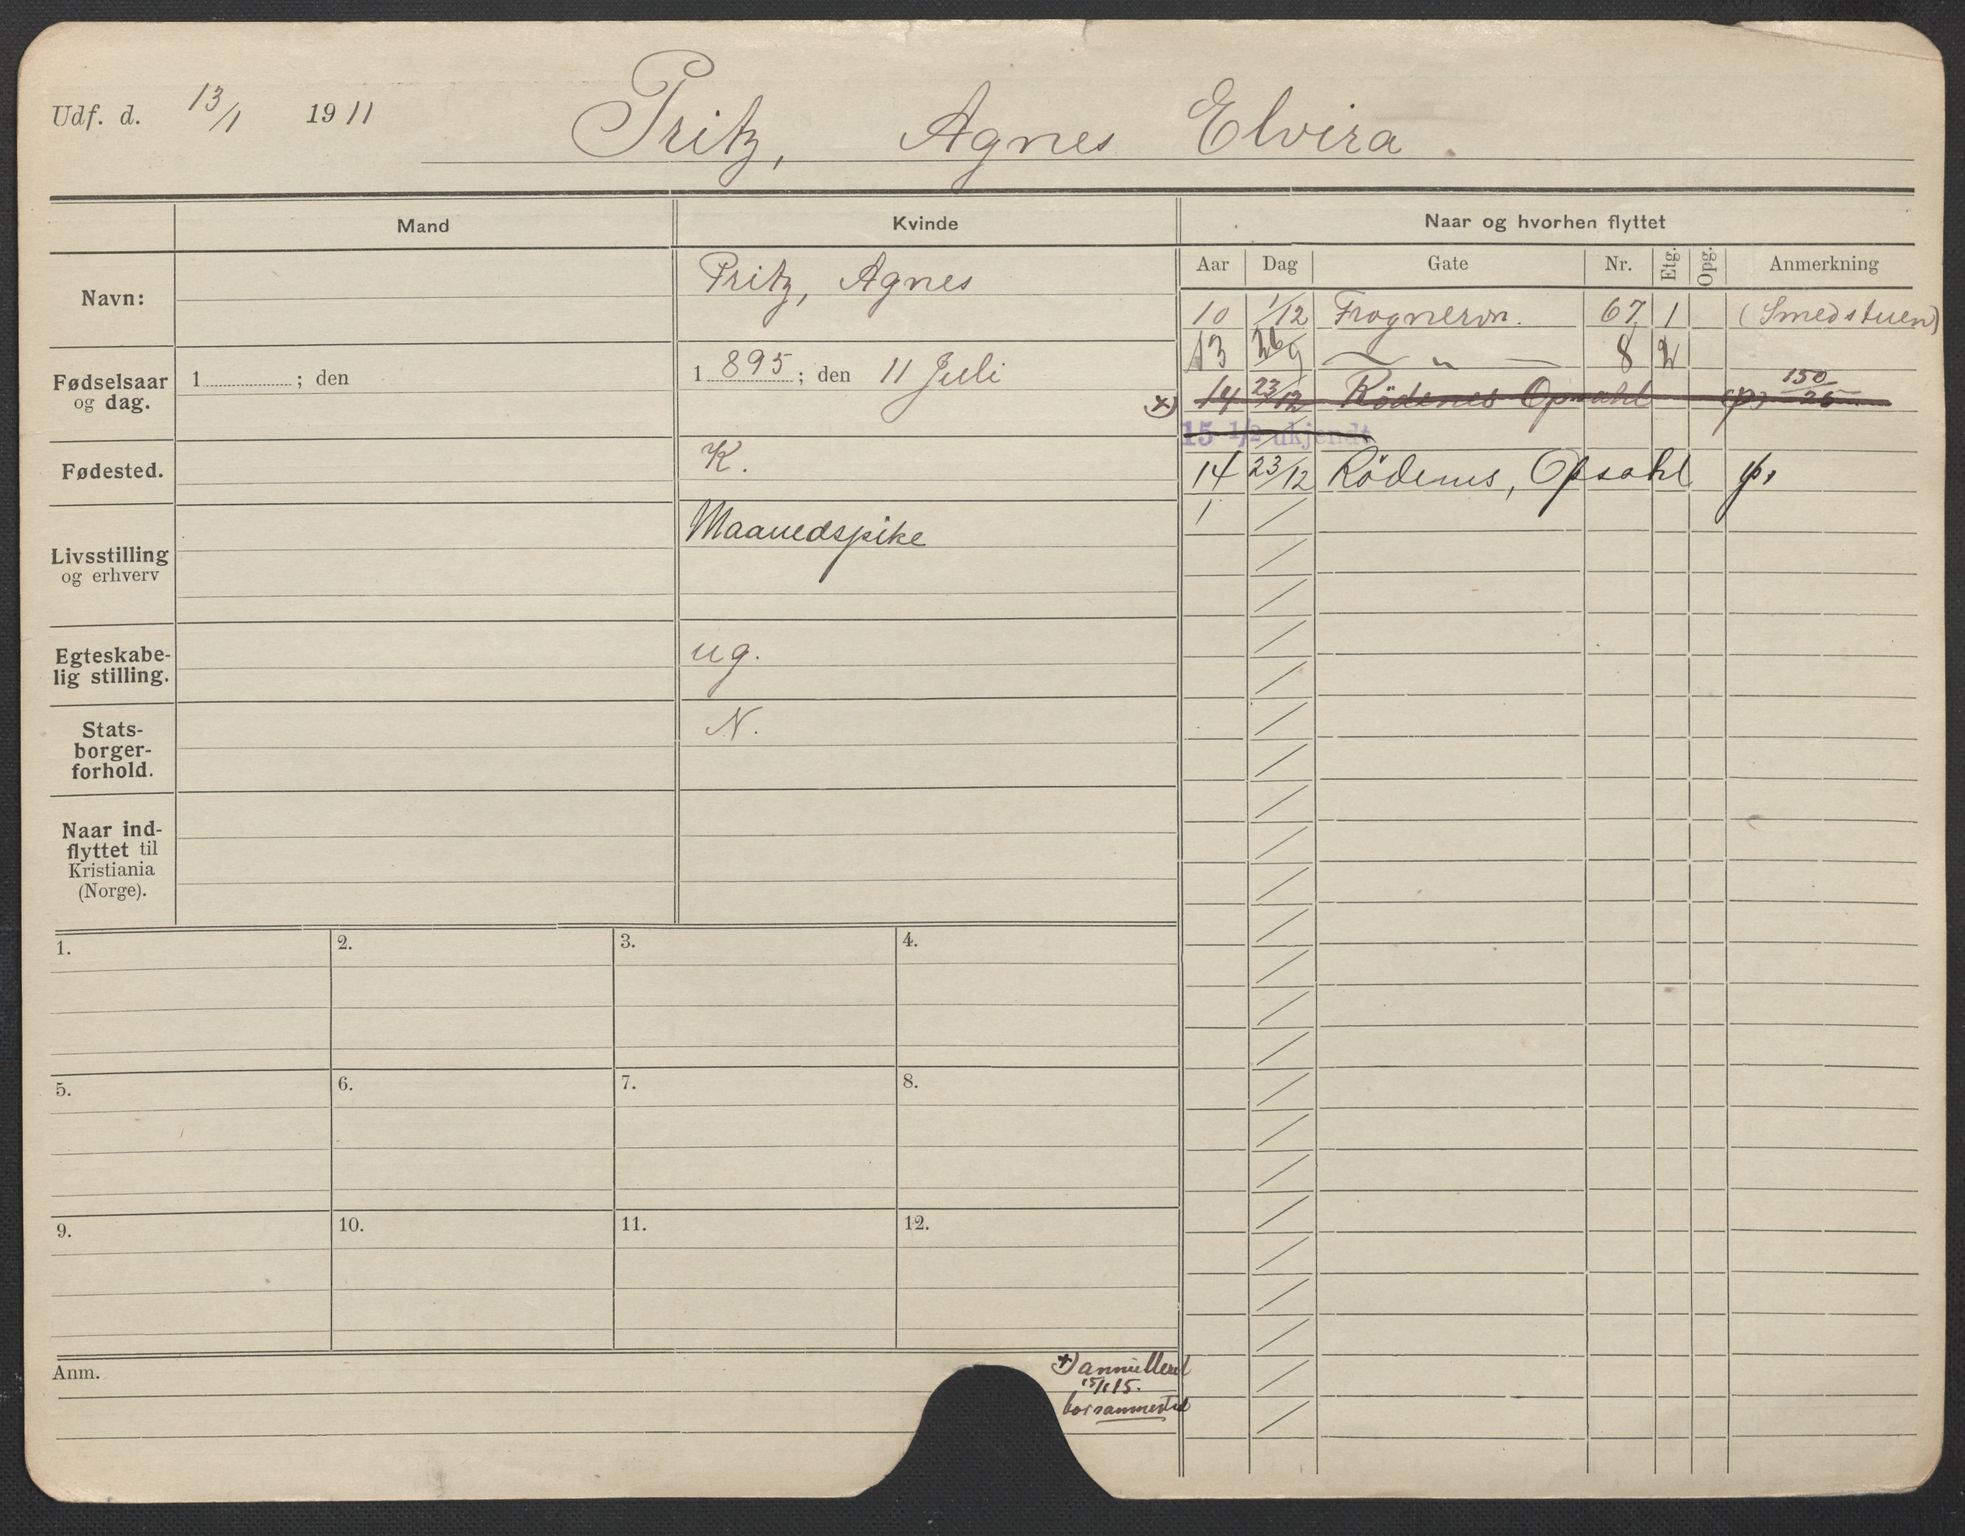 Udf. d. 13/1 1911 Pritz, Agnes Elvira.
Mand Kvinde Naar og hvorhen flyttet
Aar Dag Gate Nr. Etg. Opg. Anmerkning
Navn: Pritz, Agnes
10 1/12 Frognervn. 67 1 (Smedstuen)
13 26/9 — „ — 8 2
Fødselsaar og dag. 1 ; den 1 895 ; den 11 Juli
+) 14 23/12 Rödenes Opsahl (p) 150/26
15 1/2 ukjendt
Fødested. K.
14 23/12 Rödenes, Opsahl p.
Livsstilling og erhverv Maanedspike
Egteskabe-
lig stilling. ug.
Stats-
borger-
forhold. N.
Naar ind-
flyttet til
Kristiania
(Norge).
1. 2. 3. 4.
5. 6. 7. 8.
9. 10. 11. 12.
Anm.
+) annulleret
15/1 15.
bor sammested